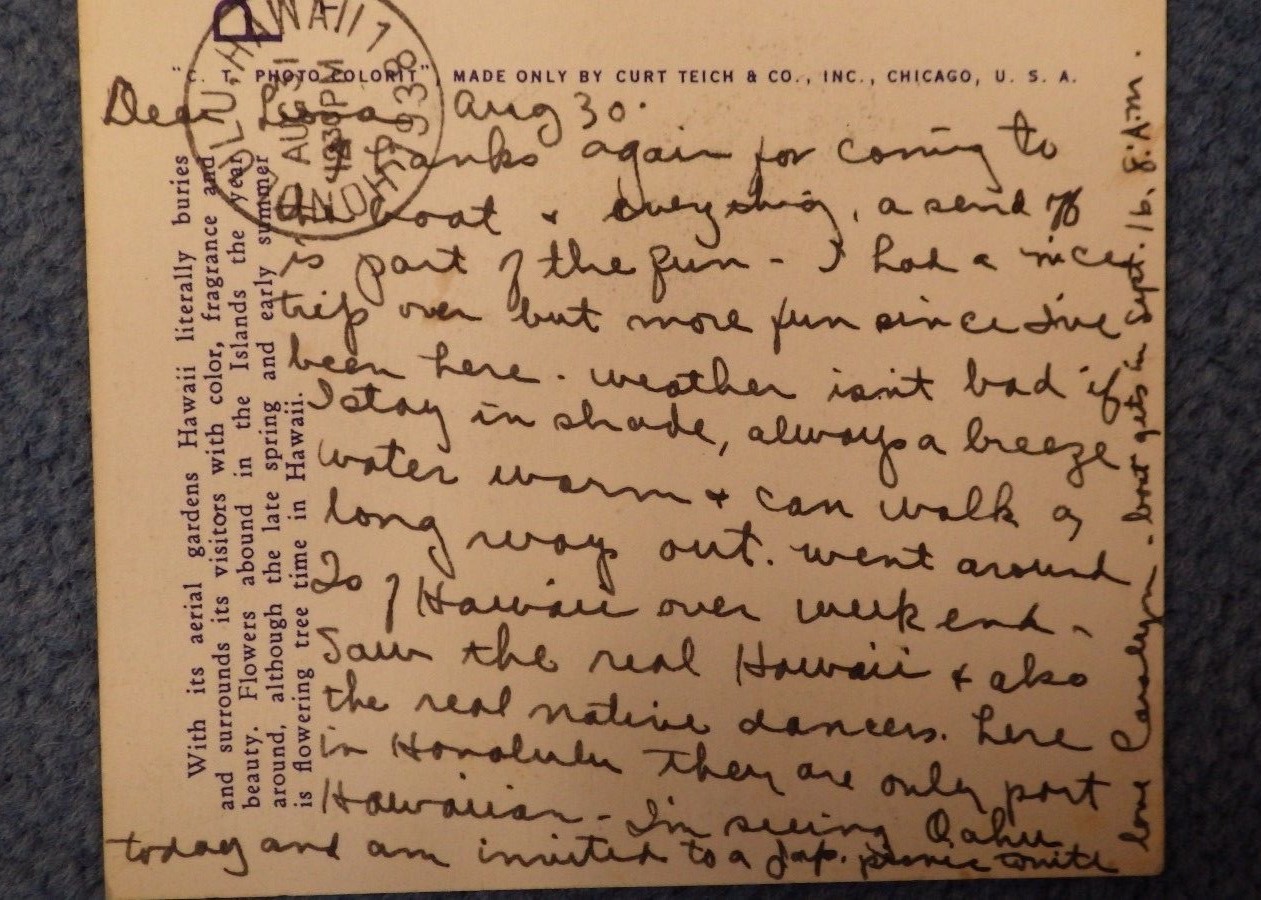 HONOLULU, HAWAII 1
AUG 31
1230 PM
1938
"C. T. PHOTO COLORIT", MADE ONLY BY CURT TEICH & CO., INC., CHICAGO, U. S. A.
Dear Aug 30.
Thanks again for coming to
the boat & everything, a send off
is part of the fun - I had a nice
trip over but more fun since I've
been here. weather isn't bad if
I stay in shade, always a breeze
water warm & can walk a
long way out. went around
Is of Hawaii over weekend -
Saw the real Hawaii & also
the real native dancers. here
in Honolulu they are only part
Hawaiian - I'm seeing Oahu
today and am invited to a Jap. picnic tonite
love Carolyn - boat gets in Sept. 16. 8: A.M.
With its aerial gardens Hawaii literally buries
and surrounds its visitors with color, fragrance and
beauty. Flowers abound in the Islands the year
around, although the late spring and early summer
is flowering tree time in Hawaii.